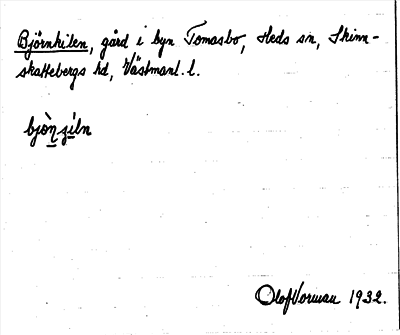 Björnkilen, gård i byn Tomasbo, Heds sn, Skinn-
skattebergs hd, Västmanl. l.
bjò̱ṉʒi̱ln
Olof Vorman 1932.